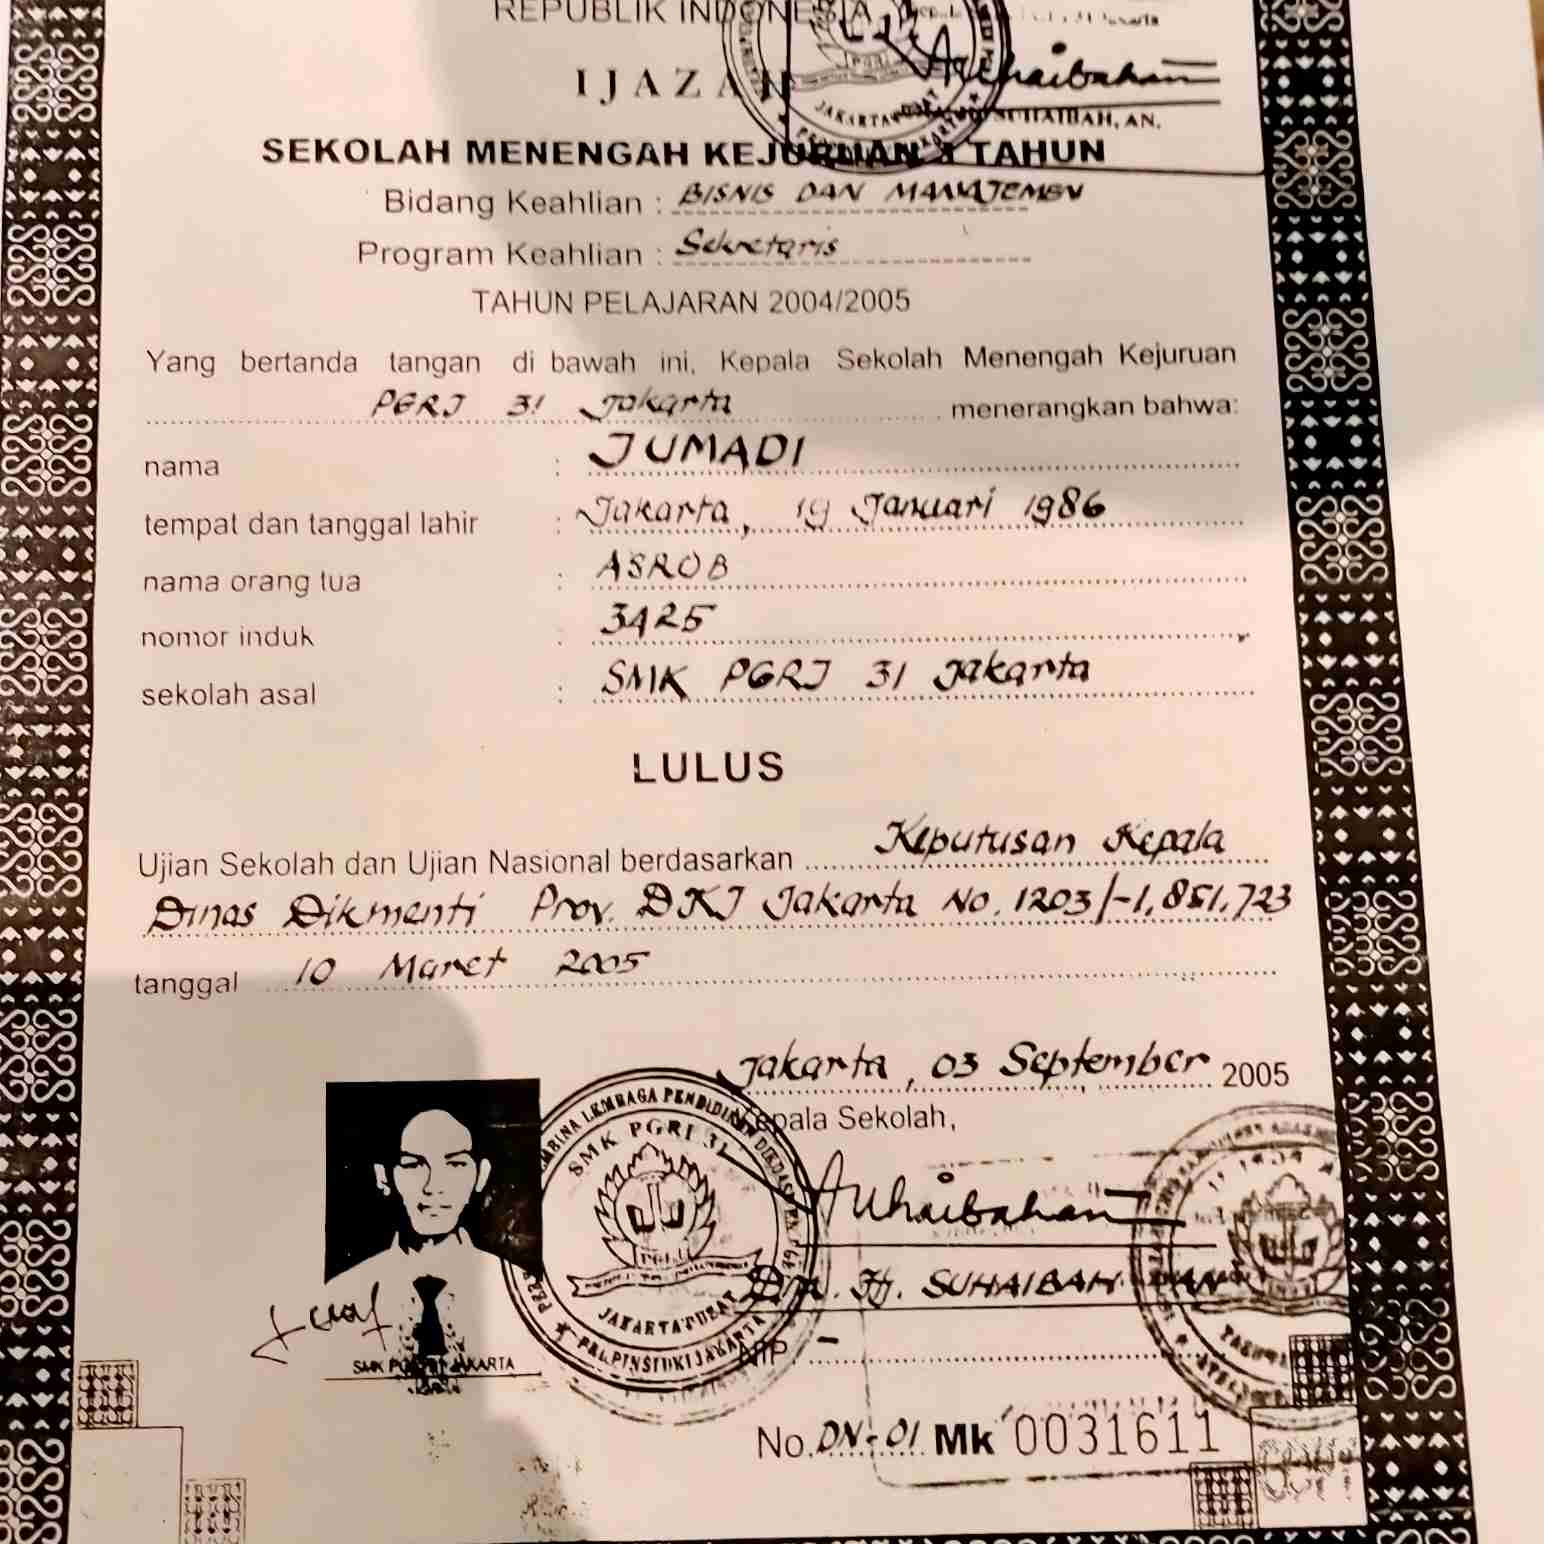 REPUBLIK INDONESIA
IJAZAH
SUHAIBAH, AN.
SEKOLAH MENENGAH KEJURUAN 3 TAHUN
Bidang Keahlian : BISNIS DAN MANAJEMEN
Program Keahlian : Sekretaris
TAHUN PELAJARAN 2004/2005
Yang bertanda tangan di bawah ini, Kepala Sekolah Menengah Kejuruan
PGRI 31 Jakarta menerangkan bahwa:
nama : JUMADI
tempat dan tanggal lahir : Jakarta, 19 Januari 1986
nama orang tua : ASROB
nomor induk : 3425
sekolah asal : SMK PGRI 31 Jakarta
LULUS
Ujian Sekolah dan Ujian Nasional berdasarkan Keputusan Kepala
Dinas Dikmenti Prov. DKI Jakarta No. 1203/-1,851,723
tanggal 10 Maret 2005
Jakarta, 03 September 2005
Kepala Sekolah,
SMK PGRI 31
JAKARTA PUSAT
Dra. Hj. SUHAIBAH AN
NIP. -
No. DN-01 Mk 0031611